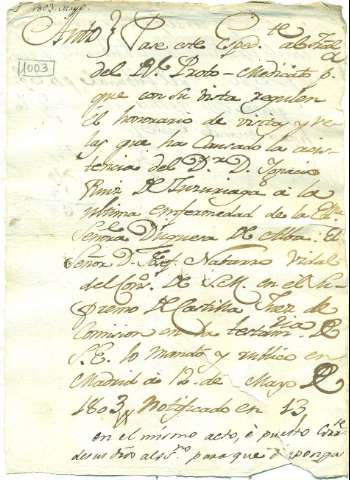 1803. Mayo
Auto} Pase este Exp.te al Tral.
1003
del Rl. Proto-Medicato p.a
que con su vista regulen
el honorario de visitas y ve-
las que ha causado la asis-
tencia del D.r D. Ignacio
Ruiz de Luzuriaga a la
ultima enfermedad de la Ex.ma
Señora Duquesa de Alba. El
Señor D. Josef Nabarro Vidal
del Con.o de S.M. en el Su-
premo de Castilla Juez de
Comision en la testam.ria de
S.E. lo mando y rubrico en
Madrid a 12 de Mayo de
1803 Notificado en 13
en el mismo acto, é puesto
para que